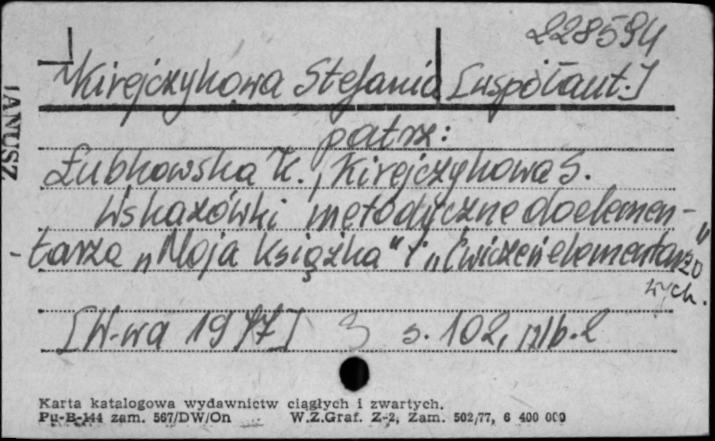 228594
Kirejczykowa Stefania [współaut.]
patrz:
Łubkowska K., Kirejczykowa S.
Wskazówki metodyczne do elemen-
tarza „Moja książka" i „Ćwiczeń elementarzo
wych."
[W-wa 1977] s. 102, nlb. 2
JANUSZ
Karta katalogowa wydawnictw ciągłych i zwartych.
Pu-B-144 zam. 567/DW/On W.Z.Graf. Z-2, Zam. 502/77, 6 400 000